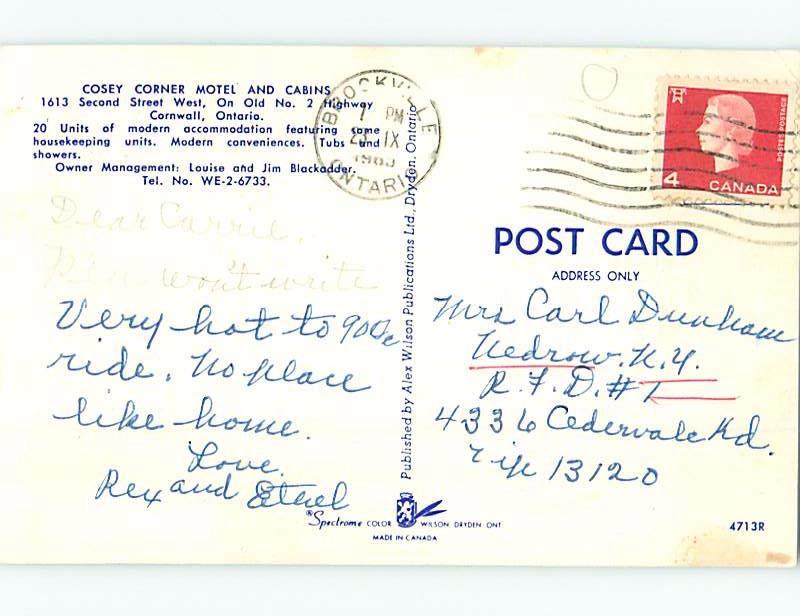 COSEY CORNER MOTEL AND CABINS
1613 Second Street West, On Old No. 2 Highway
Cornwall, Ontario.
20 Units of modern accommodation featuring some
housekeeping units. Modern conveniences. Tubs and
showers.
Owner Management: Louise and Jim Blackadder.
Tel. No. WE-2-6733.
Dear Carrie.
Pen won't write
Very hot to
ride. No place
like home.
Love.
Rex and Ethel
BROCKVILLE
PM
IX
ONTARIO
Published by Alex Wilson Publications Ltd., Dryden, Ontario
POSTES POSTAGE
4
CANADA
POST CARD
ADDRESS ONLY
Mrs Carl Dunham
Nedrow. N.Y.
R.F.D. #1
4336 Cedervale Rd.
Zip 13120
®Spectrome COLOR WILSON DRYDEN ONT
MADE IN CANADA
4713R